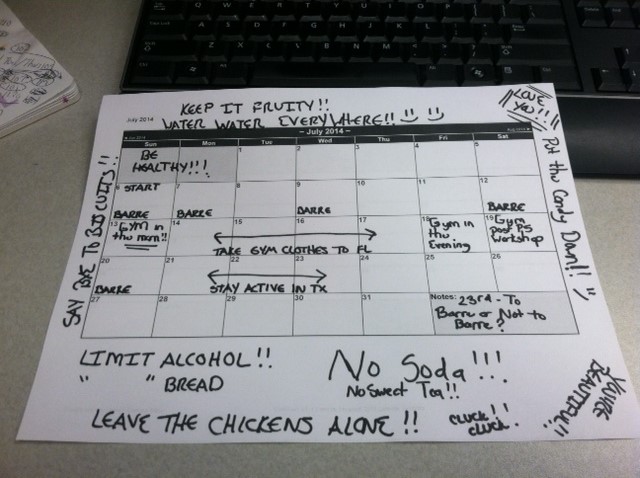 KEEP IT FRUITY!!
WATER WATER EVERYWHERE!!
LOVE YOU!!
July 2014
~ July 2014 ~
Sun Mon Tue Wed Thu Fri Sat
BE HEALTHY!!!
1 2 3 4 5
6 START BARRE
7 BARRE
8
9 BARRE
10
11
12 BARRE
13 GYM in the mrn!!
14
15 16 17
TAKE GYM CLOTHES TO FL
18 Gym in the Evening
19 Gym post PS Workshop
20 BARRE
21
22 23 24
STAY ACTIVE IN TX
25
26
27 28 29 30 31
Notes: 23rd - To
Barre or Not to
Barre?
SAY BYE TO BISCUITS!!
Put the Candy Down!!
LIMIT ALCOHOL!!
" " BREAD
No Soda!!!
No Sweet Tea!!
LEAVE THE CHICKENS ALONE!!
cluck!!
cluck.
YOU'RE BEAUTIFUL!!